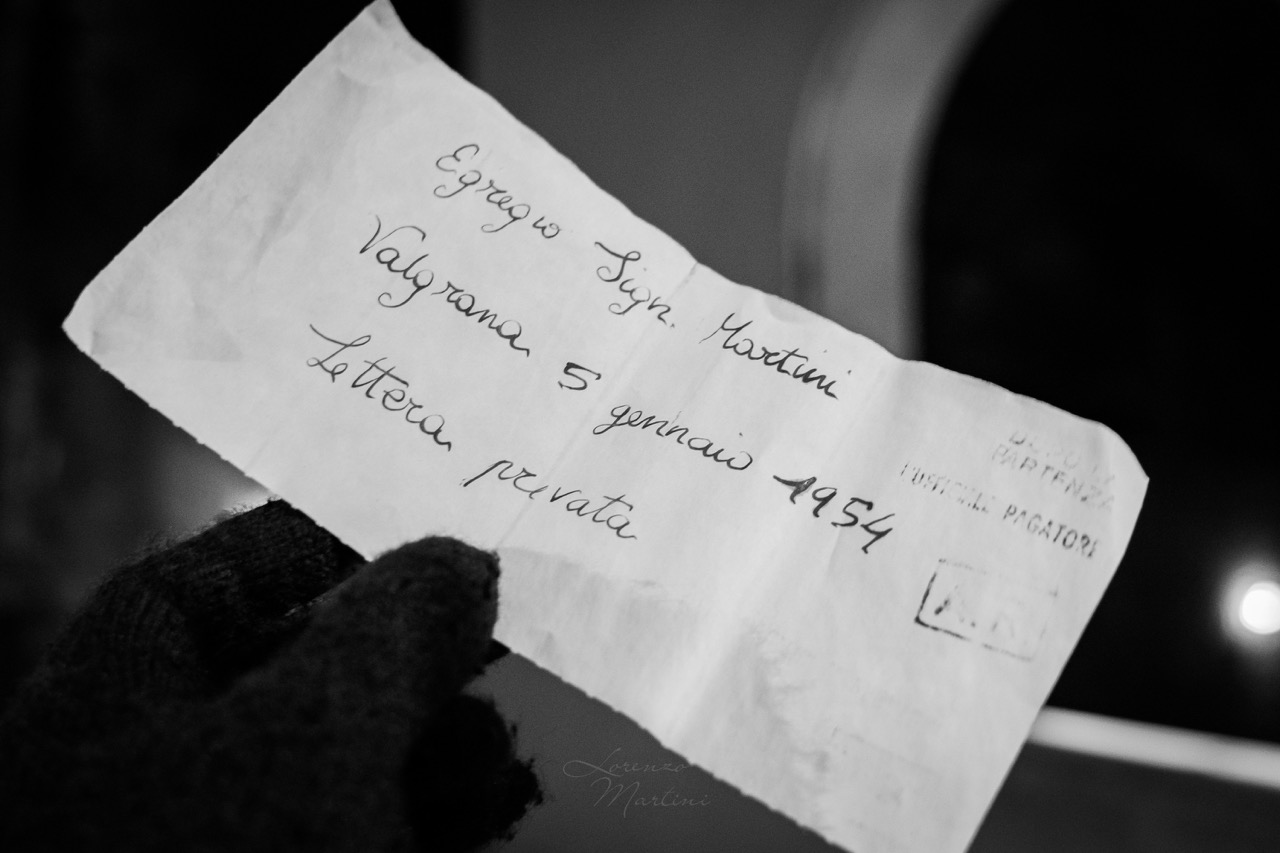 Egregio Sign. Martini
Valgrana 5 gennaio 1954
Lettera privata
PARTENZA
L'UFFICIALE PAGATORE
A.R.
Lorenzo
Martini